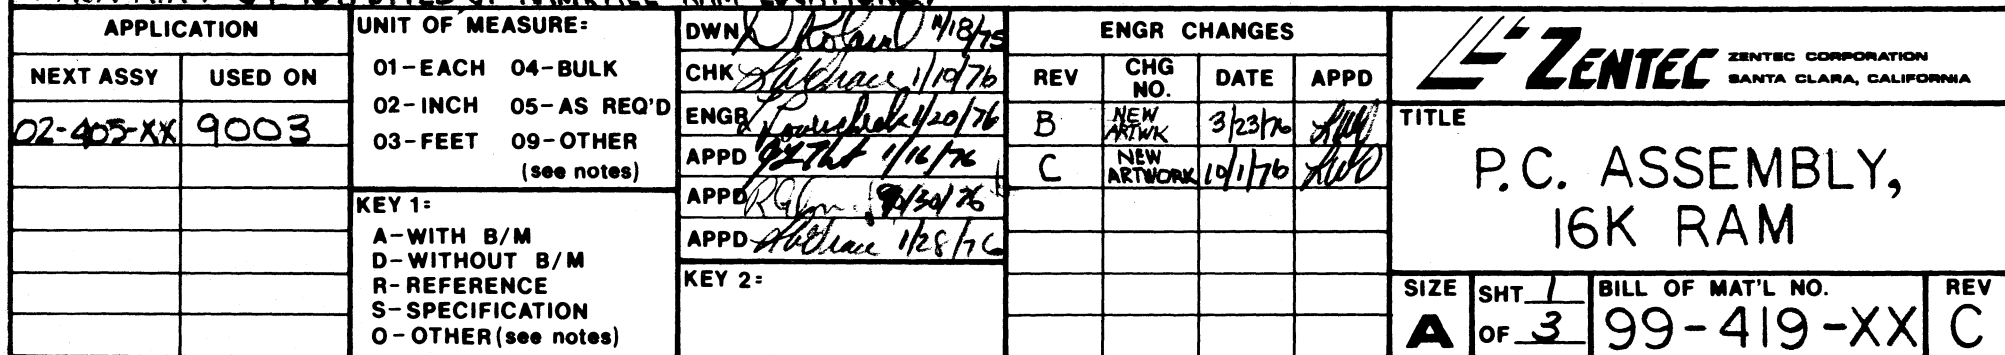 APPLICATION
NEXT ASSY USED ON
02-405-XX 9003
UNIT OF MEASURE:
01-EACH 04-BULK
02-INCH 05-AS REQ'D
03-FEET 09-OTHER
(see notes)
KEY 1:
A-WITH B/M
D-WITHOUT B/M
R-REFERENCE
S-SPECIFICATION
O-OTHER (see notes)
DWN 11/18/75
CHK 1/19/76
ENGR 1/20/76
APPD 1/16/76
APPD /30/76
APPD 1/28/76
KEY 2:
ENGR CHANGES
REV CHG NO. DATE APPD
B NEW ARTWK 3/23/76
C NEW ARTWORK 10/1/76
ZENTEC ZENTEC CORPORATION
SANTA CLARA, CALIFORNIA
TITLE
P.C. ASSEMBLY,
16K RAM
SIZE A
SHT 1 OF 3
BILL OF MAT'L NO.
99-419-XX
REV C